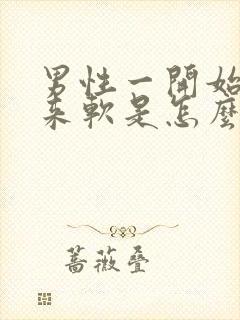 男性一開始
來軟是怎麼
蔷薇叠